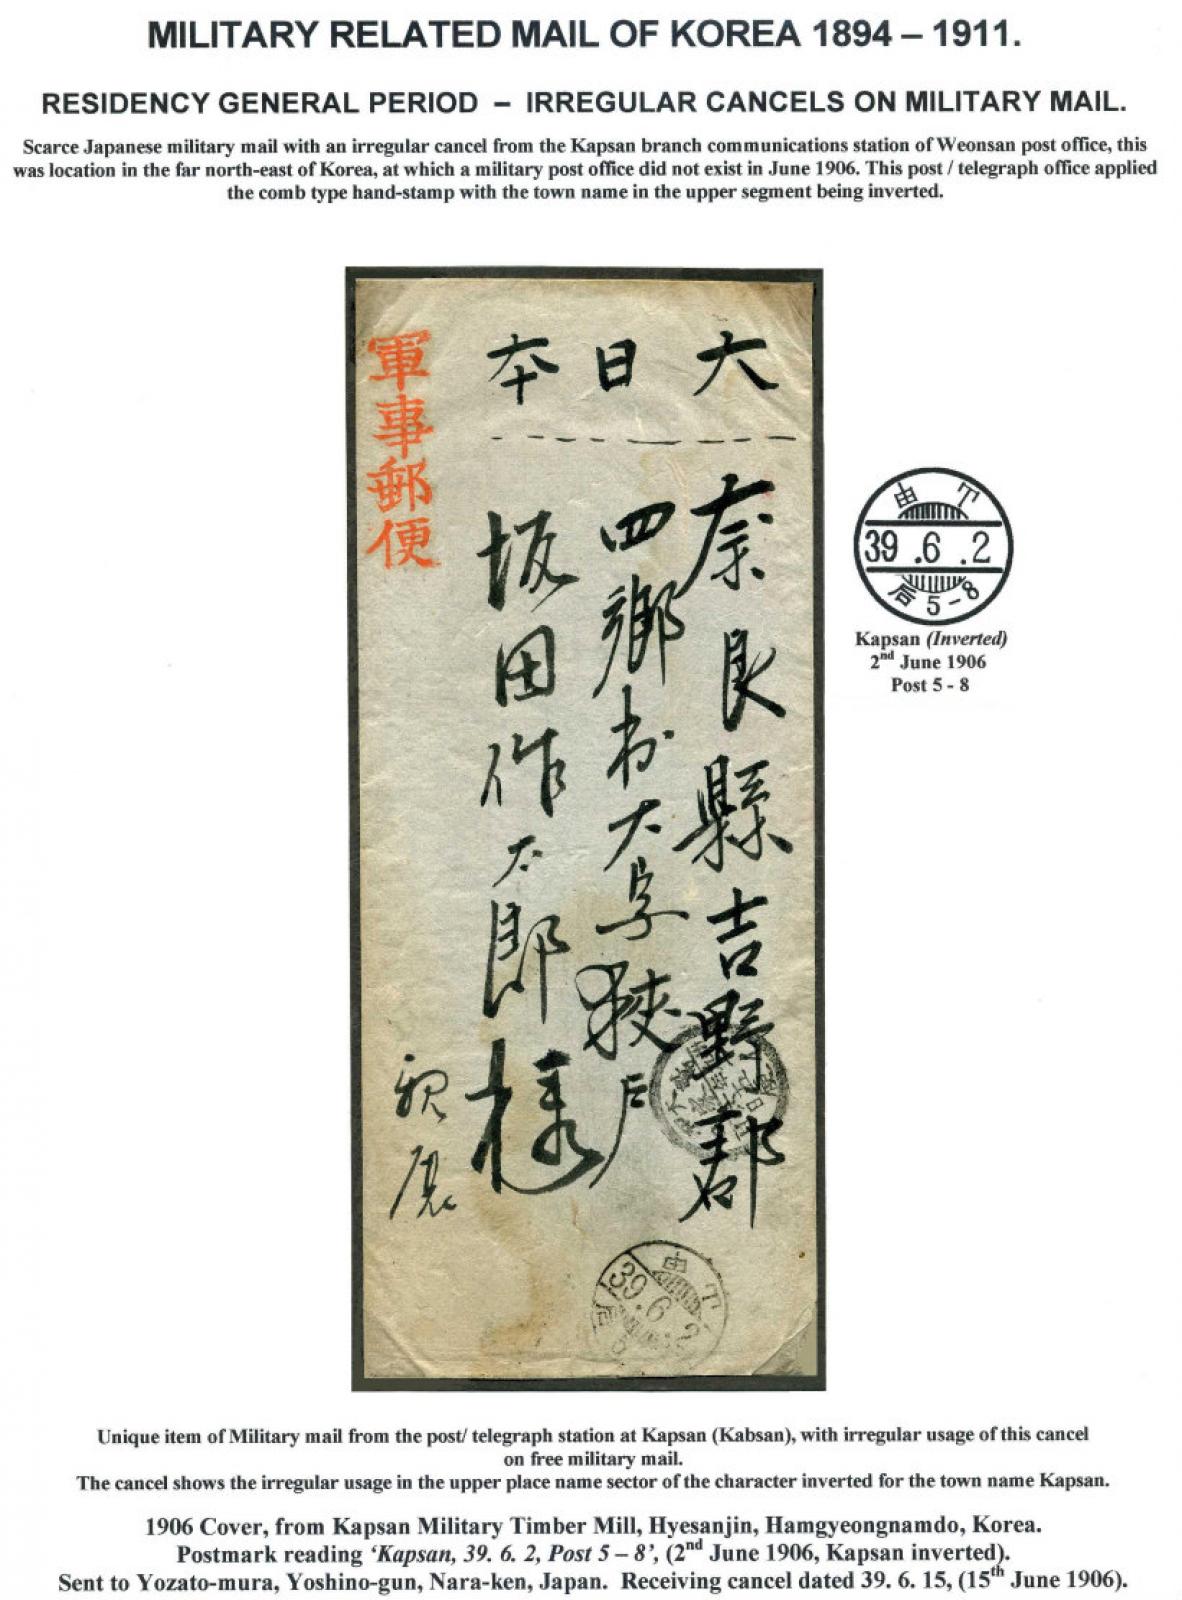 MILITARY RELATED MAIL OF KOREA 1894 – 1911.
RESIDENCY GENERAL PERIOD – IRREGULAR CANCELS ON MILITARY MAIL.
Scarce Japanese military mail with an irregular cancel from the Kapsan branch communications station of Weonsan post office, this
was location in the far north-east of Korea, at which a military post office did not exist in June 1906. This post / telegraph office applied
the comb type hand-stamp with the town name in the upper segment being inverted.
大日本
奈良縣吉野郡
四鄉村大字狹戸
坂田作太郎様
軍事郵便
親展
39.6.2
由
39 .6 .2
后 5-8
Kapsan (Inverted)
2nd June 1906
Post 5 - 8
Unique item of Military mail from the post/ telegraph station at Kapsan (Kabsan), with irregular usage of this cancel
on free military mail.
The cancel shows the irregular usage in the upper place name sector of the character inverted for the town name Kapsan.
1906 Cover, from Kapsan Military Timber Mill, Hyesanjin, Hamgyeongnamdo, Korea.
Postmark reading ‘Kapsan, 39. 6. 2, Post 5 – 8’, (2nd June 1906, Kapsan inverted).
Sent to Yozato-mura, Yoshino-gun, Nara-ken, Japan. Receiving cancel dated 39. 6. 15, (15th June 1906).